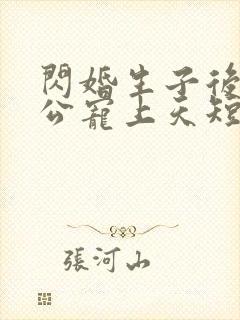 閃婚生子後
公寵上天短
張河山